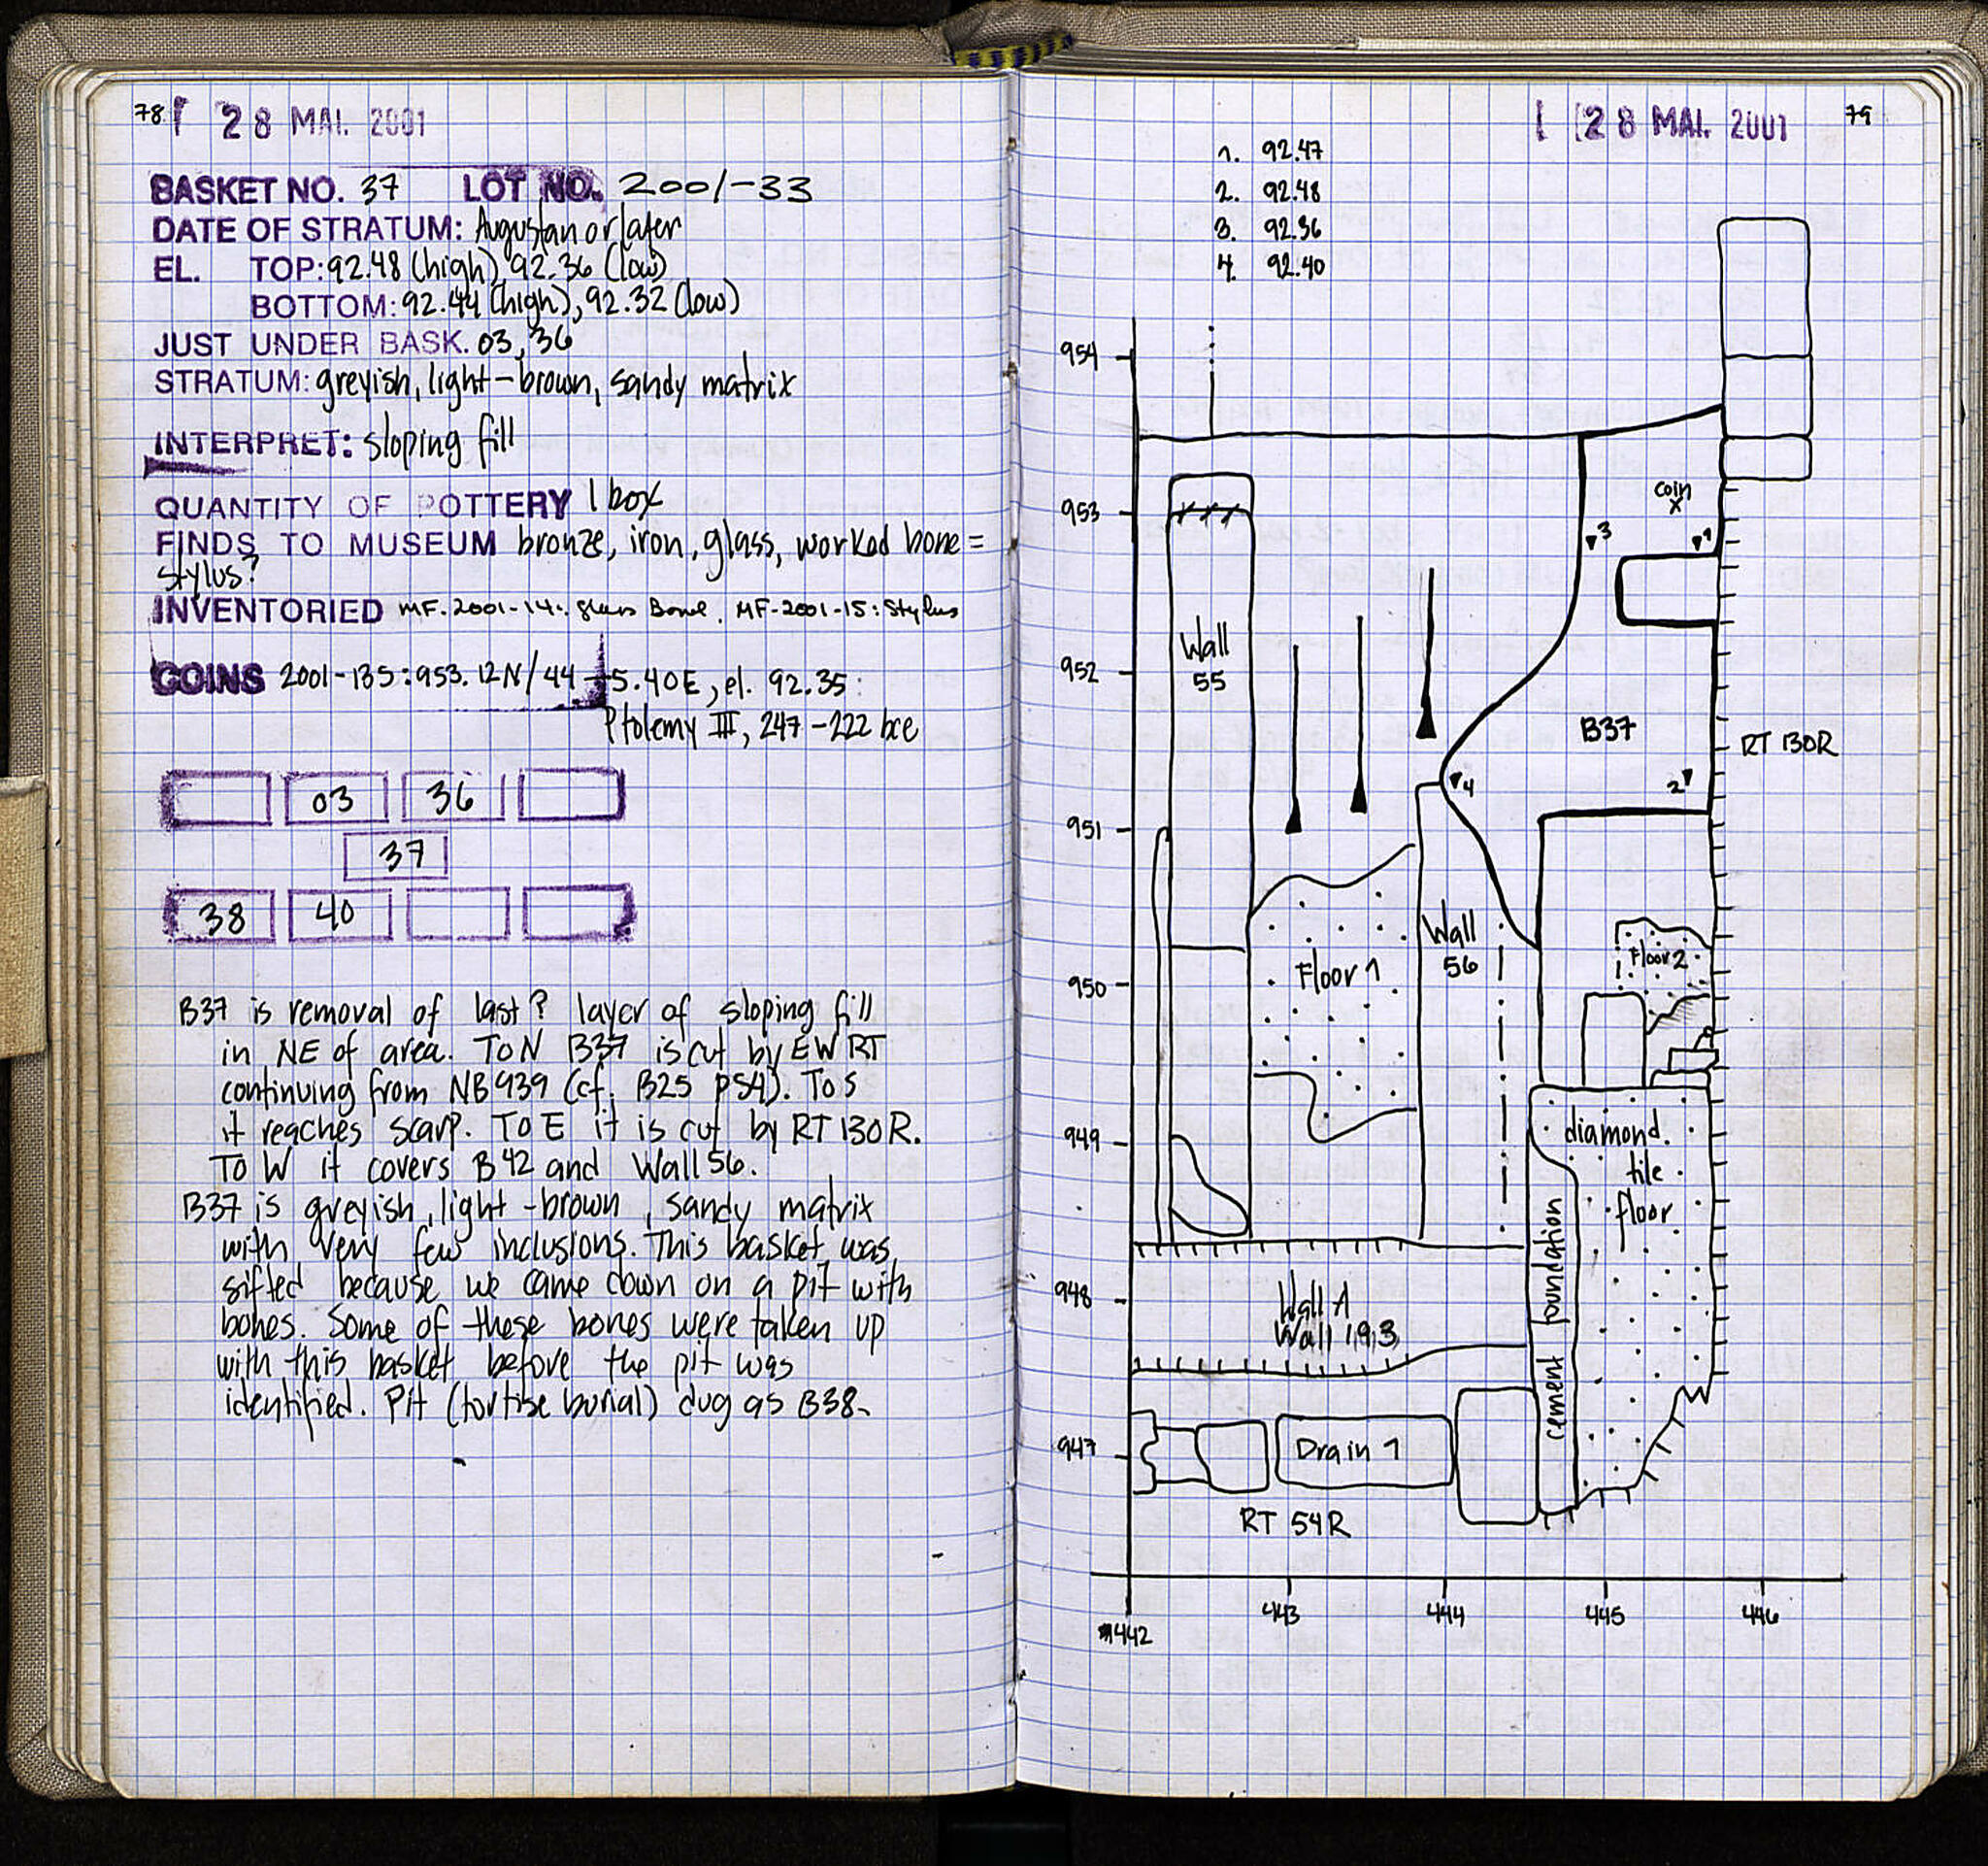 78
28 MAI. 2001
BASKET NO. 37 LOT NO. 2001-33
DATE OF STRATUM: Augustan or later
EL. TOP: 92.48 (high) 92.36 (low)
BOTTOM: 92.44 (high), 92.32 (low)
JUST UNDER BASK. 03, 36
STRATUM: greyish, light-brown, sandy matrix
INTERPRET: sloping fill
QUANTITY OF POTTERY 1 box
FINDS TO MUSEUM bronze, iron, glass, worked bone =
stylus?
INVENTORIED MF.2001-14: glass Bowl. MF-2001-15: Stylus
COINS 2001-135: 953.12N/445.40E, el. 92.35:
Ptolemy III, 247-222 bce
03 36
37
38 40
B37 is removal of last? layer of sloping fill
in NE of area. To N B37 is cut by EW RT
continuing from NB 939 (cf. B25 p54). To S
it reaches scarp. To E it is cut by RT 130R.
To W it covers B42 and Wall 56.
B37 is greyish, light-brown, sandy matrix
with very few inclusions. This basket was
sifted because we came down on a pit with
bones. Some of these bones were taken up
with this basket before the pit was
identified. Pit (tortise burial) dug as B38.
28 MAI. 2001
79
1. 92.47
2. 92.48
3. 92.36
4. 92.40
954
953
952
951
950
949
948
947
coin
x
3
1
Wall
55
B37
RT 130R
4
2
Floor 1
Wall
56
Floor 2
diamond
tile
floor
cement foundation
Wall A
Wall 1,9,3
Drain 1
RT 54R
442
443
444
445
446